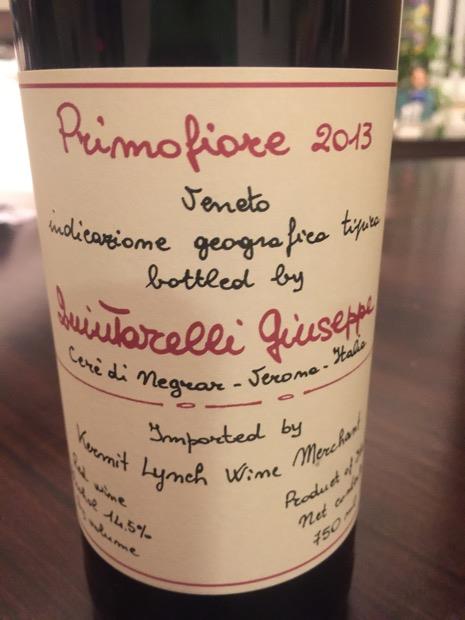 Primofiore 2013
Veneto
indicazione geografica tipica
bottled by
Quintarelli Giuseppe
Cerè di Negrar - Verona - Italia
Imported by
Kermit Lynch Wine Merchant
Red wine
alcohol 14,5%
by volume
Product of
Net
750